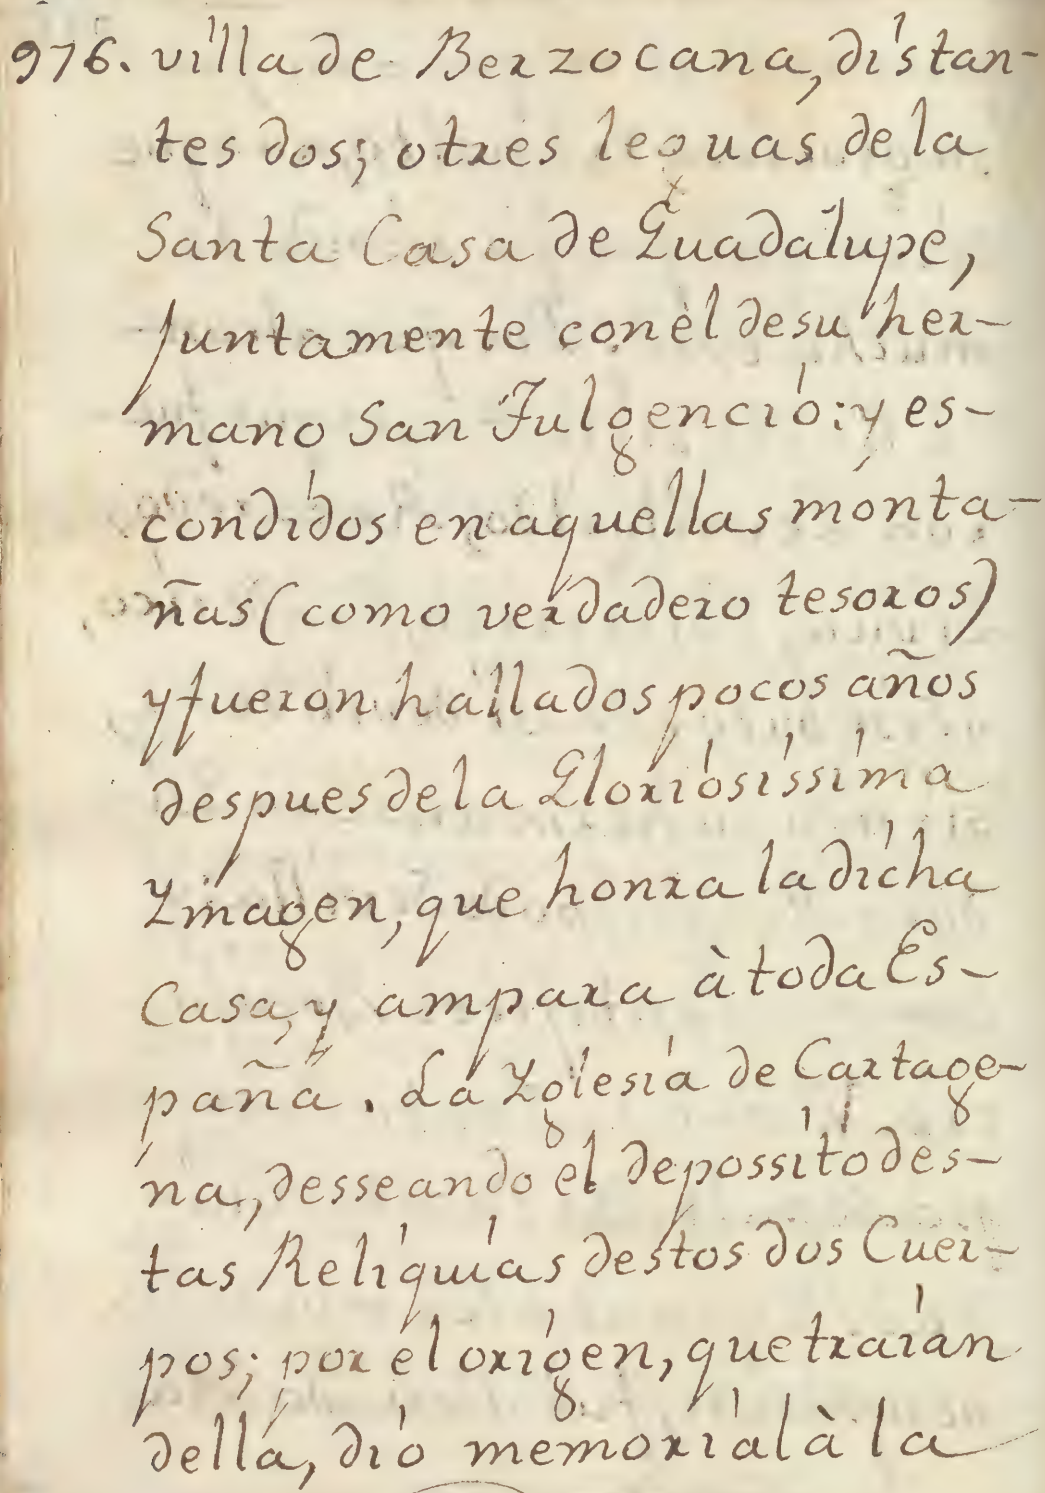 976. villa de Berzocana, distan-
tes dos; otres leguas de la
Santa Casa de Guadalupe,
Juntamente con èl de su her-
mano San Fulgencio: y es-
condidos en aquellas monta-
ñas (como verdadero tesoros)
y fueron hallados pocos años
despues de la Gloriosissima
Ymagen, que honra la dicha
Casa, y ampara à toda Es-
paña. La Yglesia de Cartage-
na, desseando el depossito des-
tas Reliquias destos dos Cuer-
pos; por el origen, que traian
della, dio memorial à la